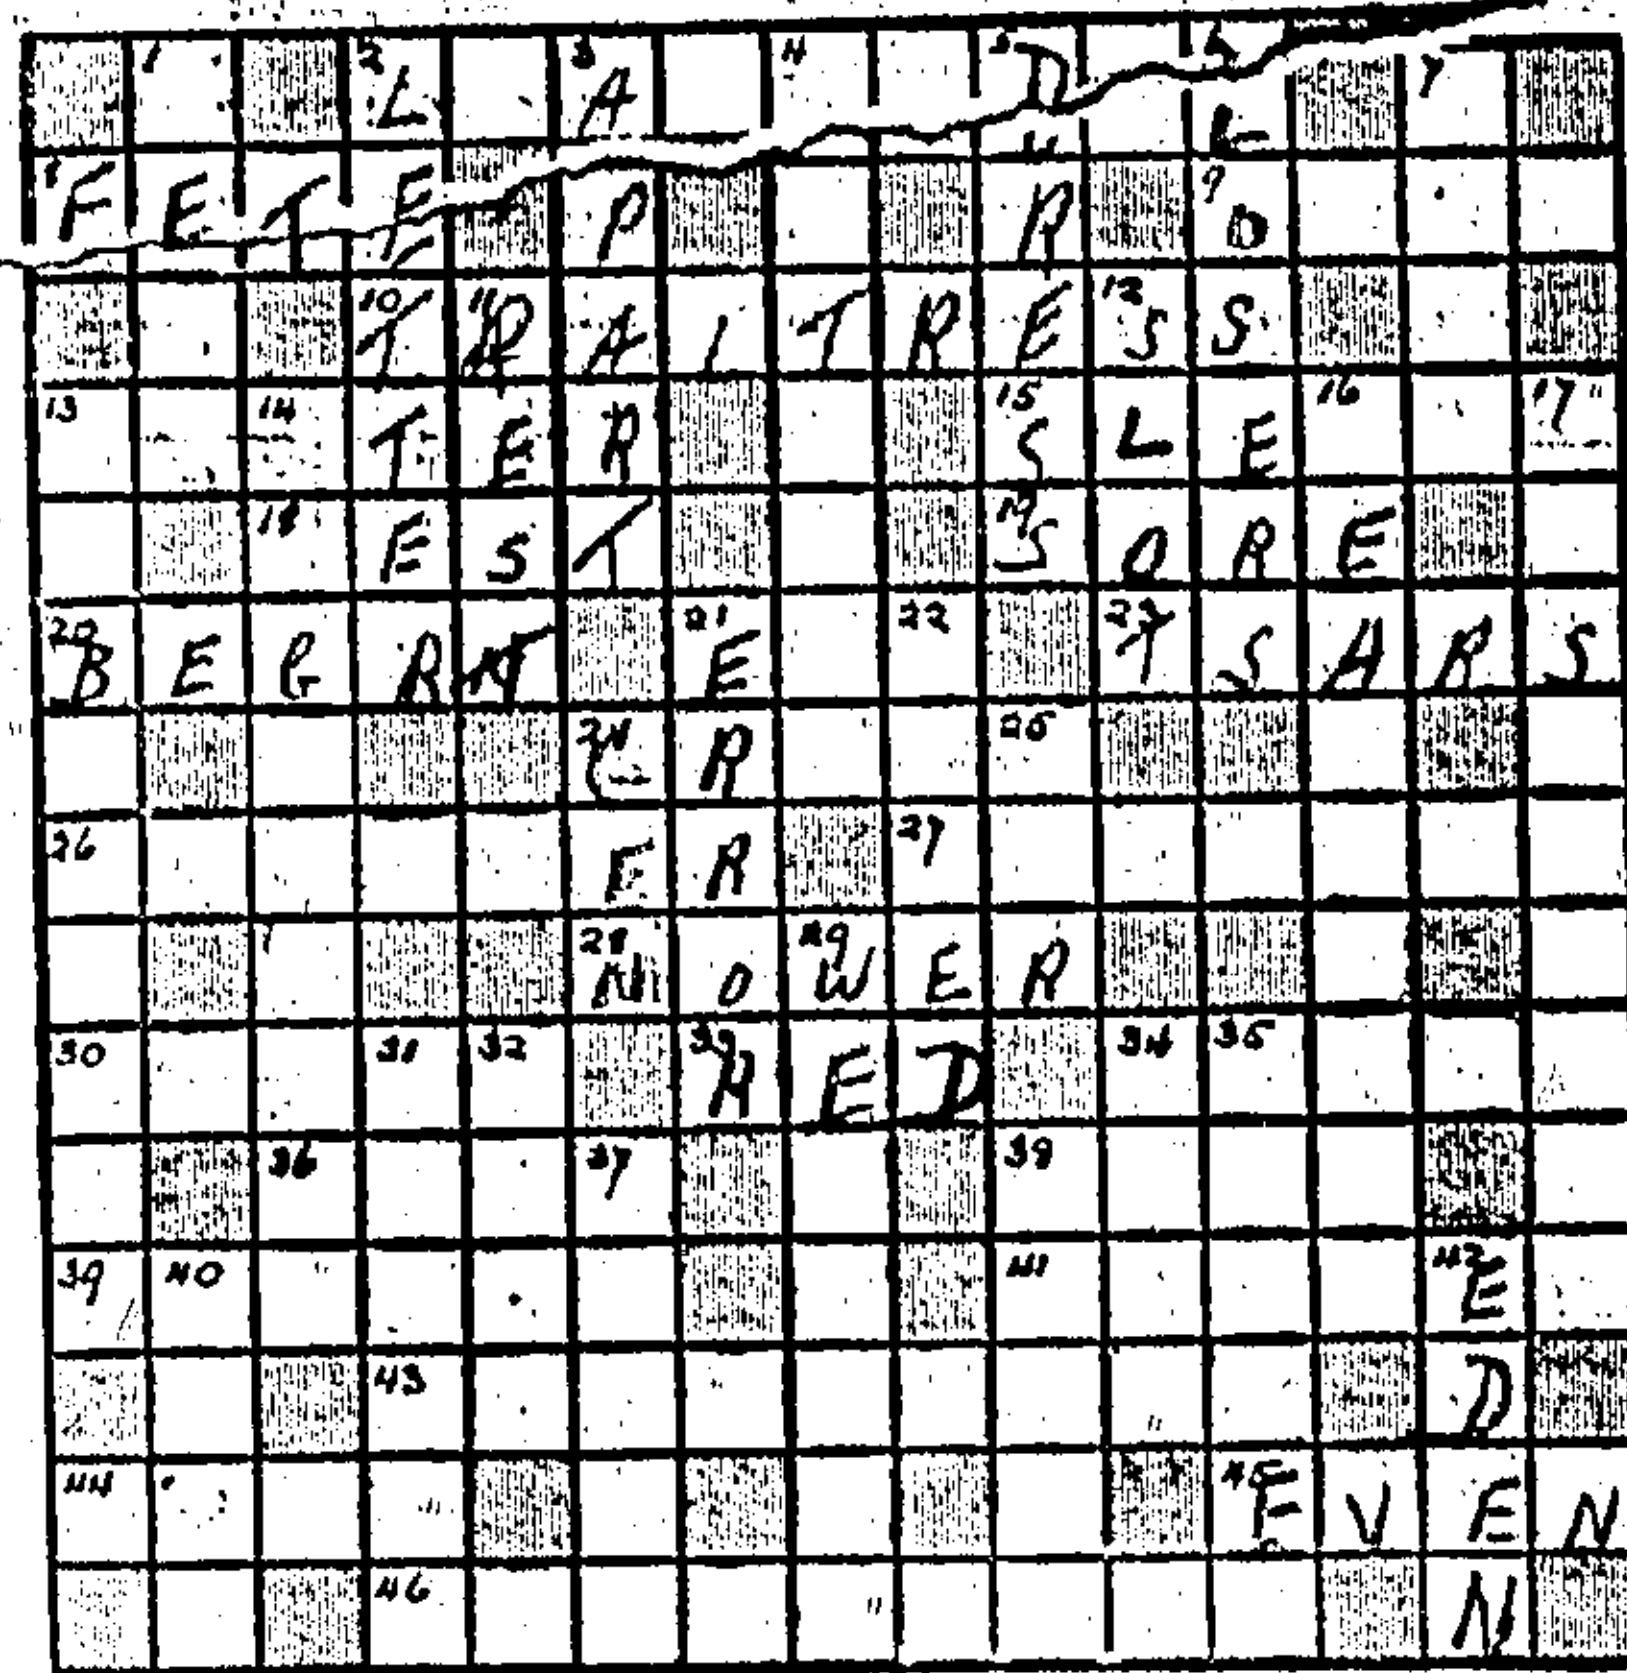 1 2 L 3 A 4 5 D 6 L 7
8 F E T E P U R 9 O
10 T 11 R A I T R E 12 S S
13 14 T E R 15 S L E 16 17
18 E S T 19 S O R E
20 B E G R T 21 E 22 23 T S A R S
24 C R 25
26 E R 27
28 N O 29 W E R
30 31 32 33 R E D 34 35
36 37 38
39 40 41 42 E
43 D
44 45 E V E N
46 N